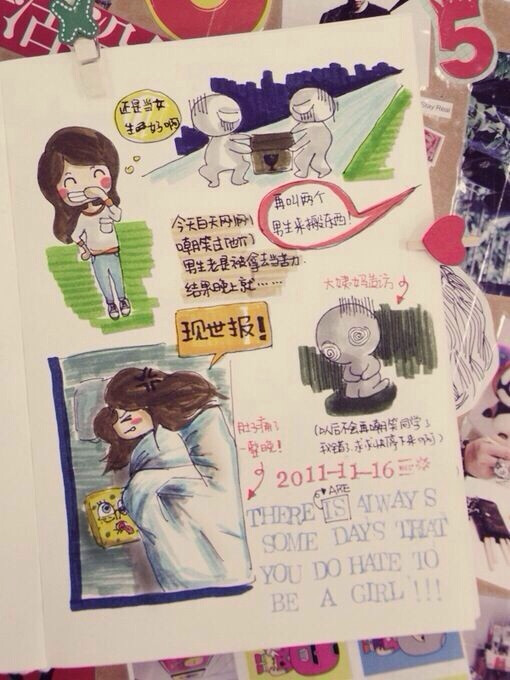 还是当女
生好啊
5
Stay Real
再叫两个
男生来搬东西!
今天白天刚刚
嘲笑过他们
男生老是被拿去当苦力
结果晚上就……
现世报!
大姨妈造访
肚子痛了
整晚!
(以后不会再嘲笑同学了
我错了.求求快停下来啊啊)
2011-11-16
ARE
THERE IS ALWAYS
SOME DAYS THAT
YOU DO HATE TO
BE A GIRL!!!